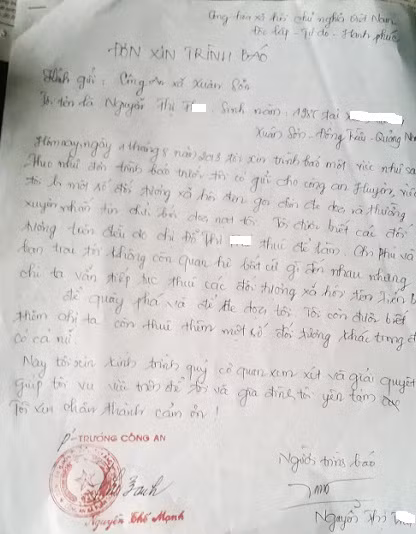 Cộng hòa xã hội chủ nghĩa Việt Nam
Độc lập - Tự do - Hạnh phúc
ĐƠN XIN TRÌNH BÁO
Kính gửi: Công An xã Xuân
Tôi tên là Nguyễn Thị Sinh năm tại
Xuân Sơn - Đông Triều - Quảng N
Hôm nay ngày 4 tháng 8 năm tôi xin trình báo một việc như sa
Như đơn trình báo trước tôi có gửi cho công an Huyện, việc
tôi bị một số đối tượng xã hội đen gọi điện đe dọa và thường
xuyên nhắn tin dọa nạt tôi. Tôi được biết các đối
tượng trên đều do chị Đỗ Thị thuê để làm. Chị Phi và
bạn trai tôi không còn quan hệ bất cứ gì đến nhau nhưng
chị ta vẫn tiếp tục thuê các đối tượng xã hội
để quấy phá và đe dọa tôi. Tôi còn được biết
thêm chị ta còn thuê thêm một số đối tượng khác trong đ
có cả nữ.
Nay tôi xin kính trình quý cơ quan xem xét và giải quyết
giúp tôi vụ việc trên để tôi và gia đình tôi yên tâm
Tôi xin chân thành cảm ơn!
P-TRƯỞNG CÔNG AN
Người trình báo
Nguyễn Thế Mạnh
Nguyễn Thị